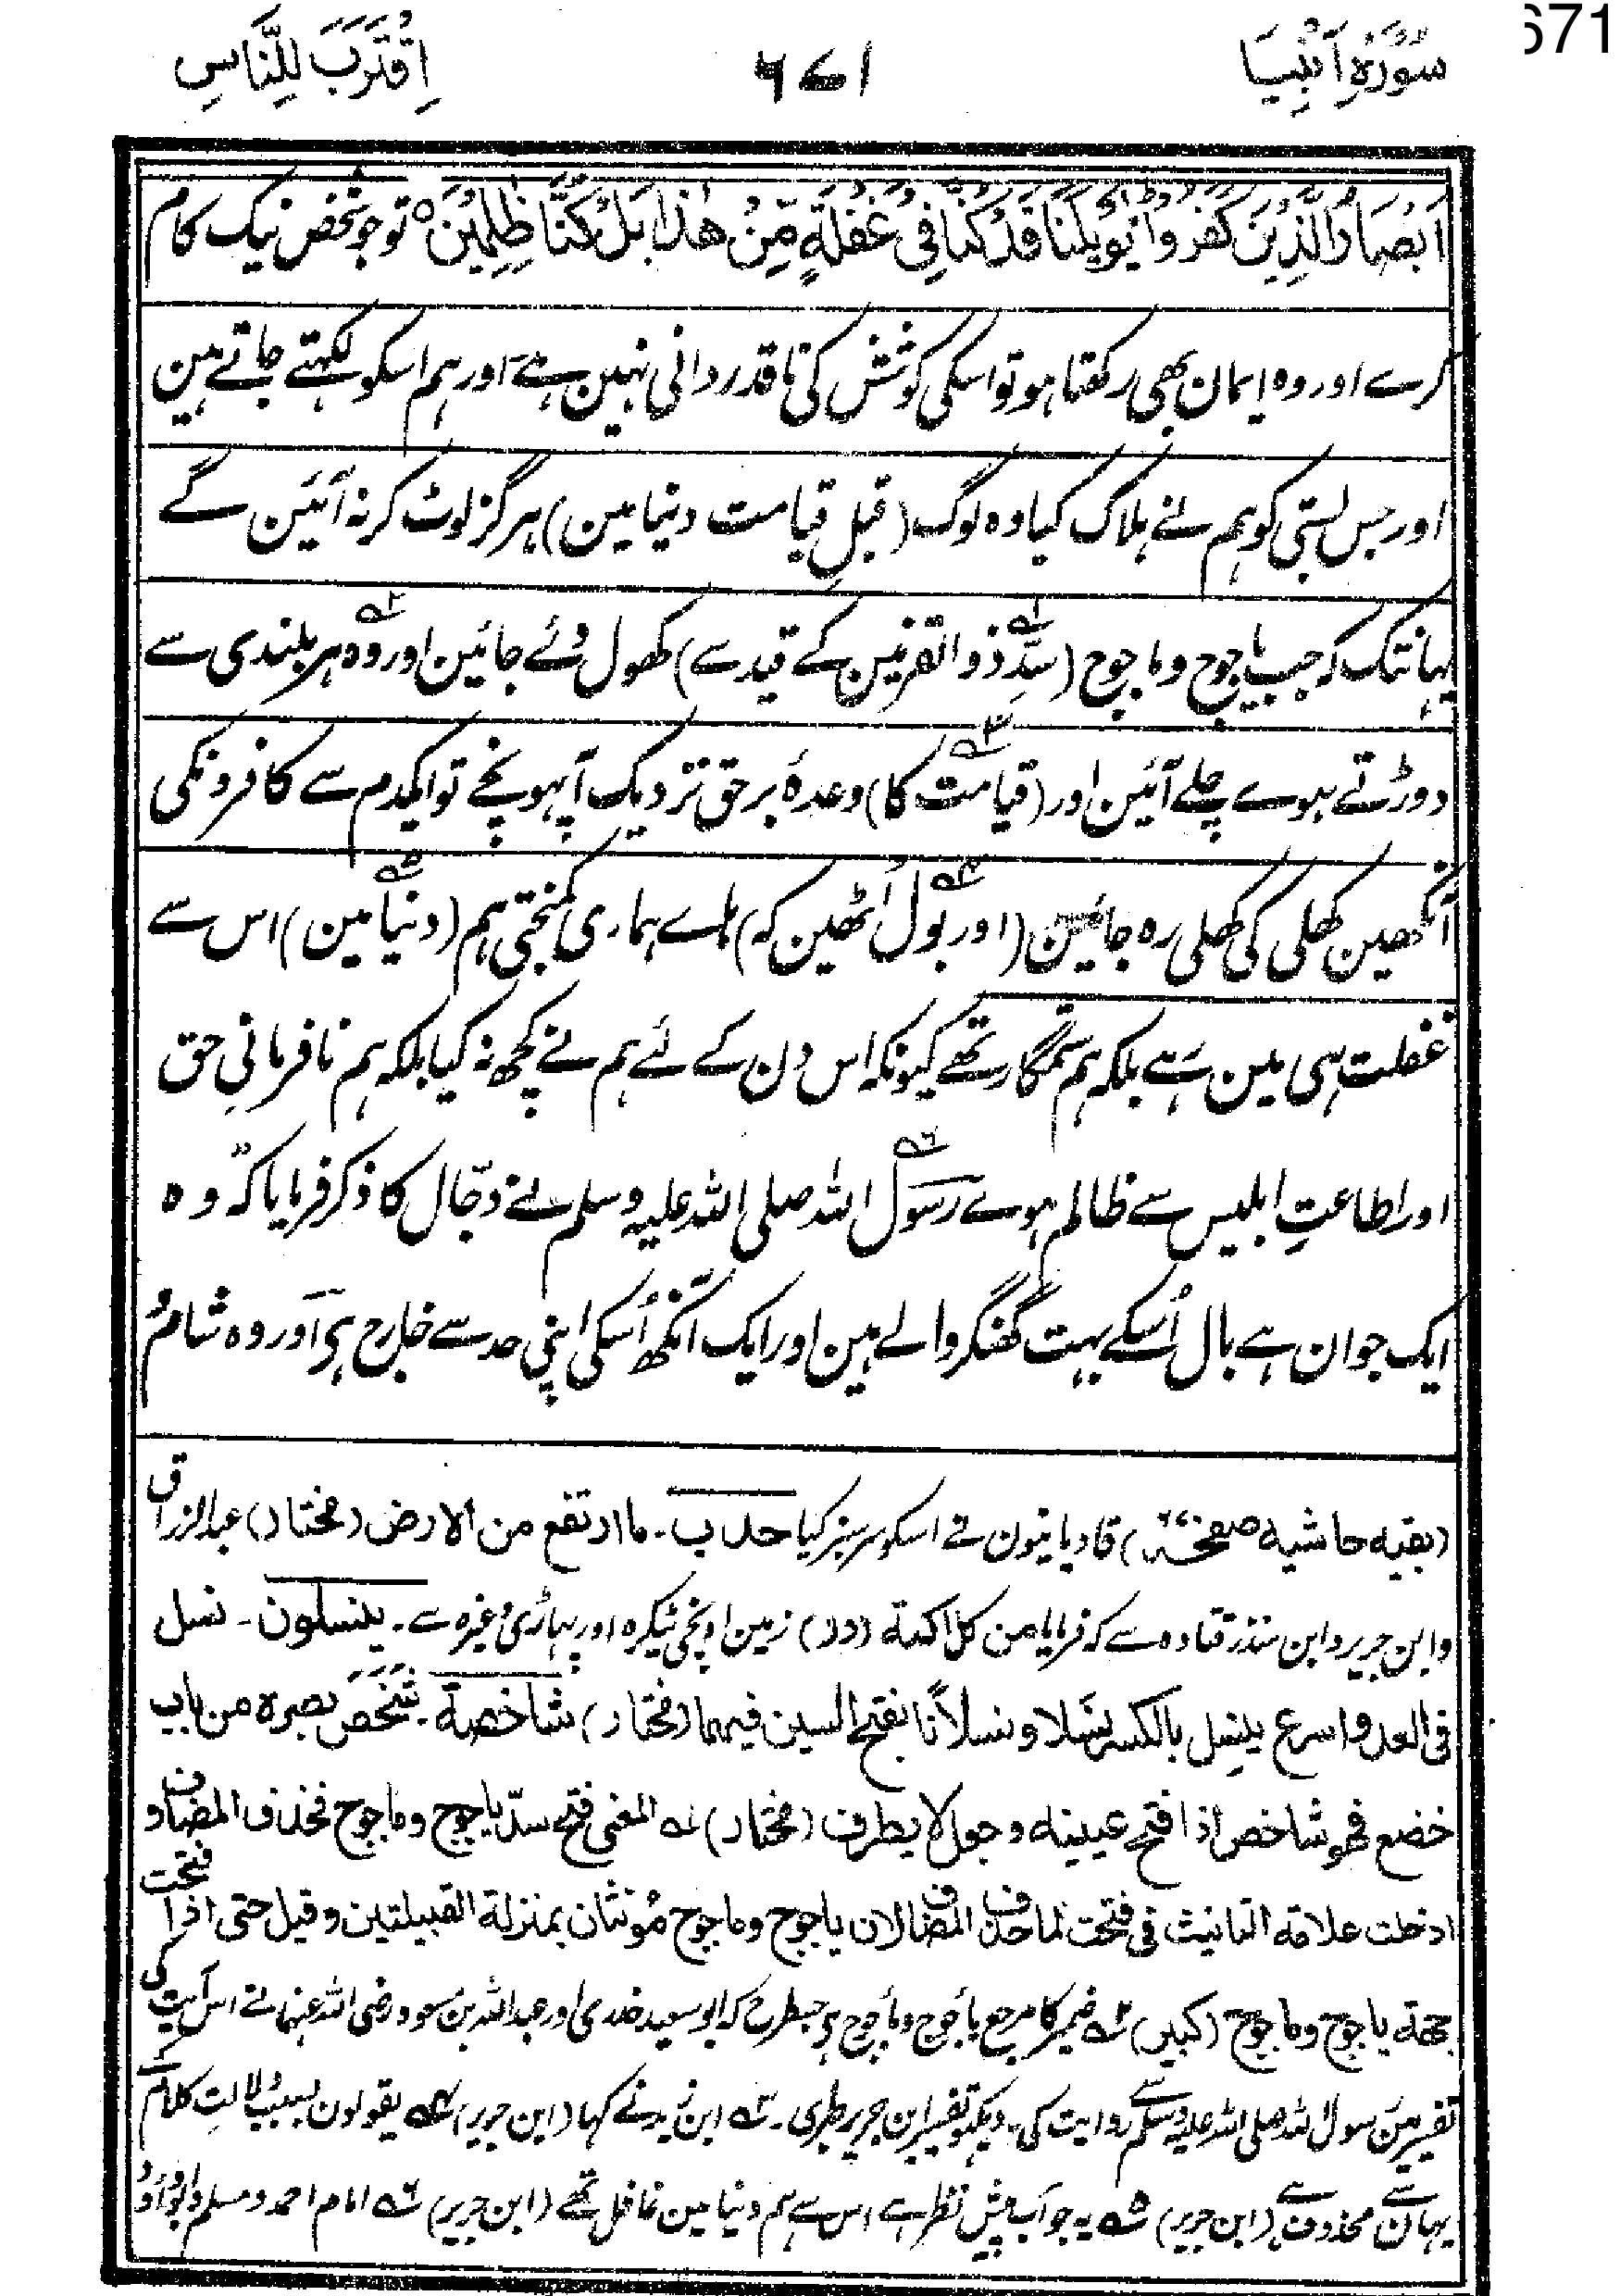 671
سُوْرَۃِ اَنْبِیَا ۶۷۱ اِقْتَرَبَ لِلنَّاسِ
اَبْصَارُ الَّذِیْنَ کَفَرُوْا یٰوَیْلَنَا قَدْ کُنَّا فِیْ غَفْلَةٍ مِّنْ هٰذَا بَلْ کُنَّا ظٰلِمِیْنَ ○ تو جو شخص نیک کام
کرے اور وہ ایمان بھی رکھتا ہو تو اسکی کوشش کی ناقدردانی نہین ہے اور ہم اسکو لکھتے جاتے ہین
اور جس بستی کو ہم نے ہلاک کیا وہ لوگ (قبل قیامت دنیا مین) ہرگز لوٹ کر نہ آئین گے
یہانتک کہ جب یاجوج و ماجوج (سدِّ ذوالقرنین کے قید سے) کھول دئے جائین اور وہ ہر بلندی سے
دوڑتے ہوے چلے آئین اور (قیامت کا) وعدۂ برحق نزدیک آپہونچے تو ایکدم سے کافرونکی
آنکھین کھلی کی کھلی رہ جائین (اور بول اُٹھین کہ) ہاے ہماری کمبختی ہم (دنیا مین) اس سے
غفلت ہی مین رہے بلکہ ہم ستمگار تھے کیونکہ اس دن کے لئے ہم نے کچھ نہ کیا بلکہ ہم نافرمانیِ حق
اور اطاعتِ ابلیس سے ظالم ہوے رسول اللہ صلی اللہ علیہ وسلم نے دجّال کا ذکر فرمایا کہ وہ
ایک جوان ہے بال اُسکے بہت گھنگروالے ہین اور ایک آنکھ اُسکی اپنی حد سے خارج ہی اور وہ شام و
(بقیہ حاشیہ صفحہ) قادیانیون نے اسکو سرسبز کیا حدب۔ ما ارتفع من الارض (مختار) عبدالرزاق
وابن جریر وابن منذر قتادہ سے کہ فرمایا من کل اکمة (در) زمین اونچی ٹیکرہ اور پہاڑی وغیرہ سے۔ ینسلون۔ نسل
فی العدو اسرع ینسِل بالکسر نسَلا ونسلاناً بفتح السین فیهما (مختار) شاخصة۔ شَخَصَ بصره من باب
خضع فهو شاخص اذا فتح عینیه وجعل لا یطرف (مختار) المعنی فتح سدّ یاجوج وماجوج فحذف المضاف و
ادخلت علامة التانیث فی فتحت لما حذف المضاف لان یاجوج وماجوج مؤنثان بمنزلة القبیلتین وقیل حتی اذا فتحت
جهة یاجوج وماجوج (کبیر) ضمیر کا مرجع یاجوج وماجوج ہی جسطرح کہ ابوسعید خدری اور عبداللہ بن مسعود رضی اللہ عنہما نے اس آیت کی
تفسیر مین رسول اللہ صلی اللہ علیہ وسلم سے روایت کی، دیکھو تفسیر ابن جریر طبری۔ ابن زید نے کہا (ابن جریر) یقولون بسبب دلالتِ کلام
یہان سے محذوف ہے (ابن جریر) یہ جو اب پیش نظر ہے اس سے ہم دنیا مین غافل تھے (ابن جریر) امام احمد ومسلم وابوداود